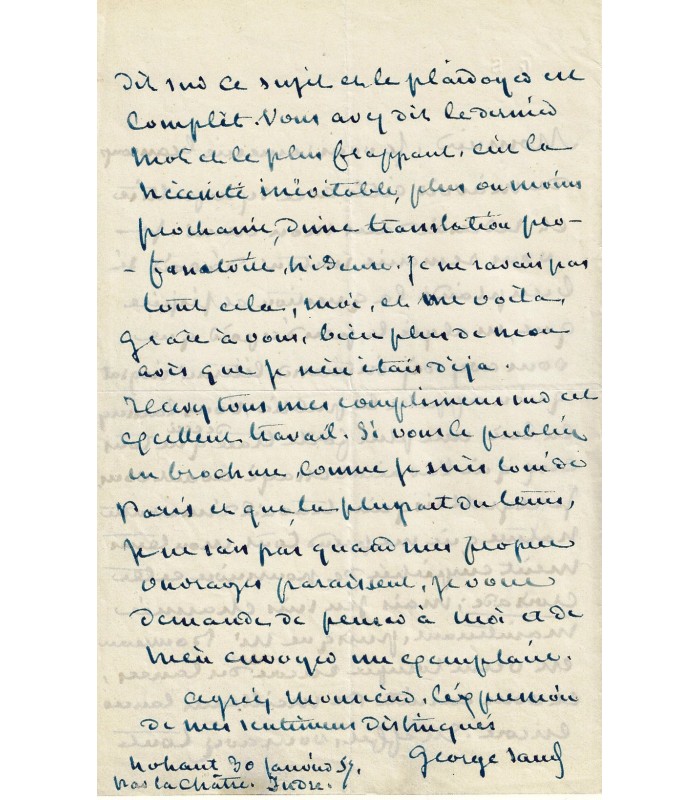 dit sur ce sujet et le plaidoyer est
complet. Vous avez dit le dernier
mot et le plus frappant, c'est la
nécessité inévitable, plus ou moins
prochaine, d'une translation pro-
-fanatoire, hideuse. Je ne savais pas
tout cela, moi, et me voilà,
grâce à vous, bien plus de mon
avis que je n'en étais déjà.
Recevez tous mes complimens sur cet
excellent travail. Si vous le publiez
en brochure, comme je suis loin de
Paris et que la plupart du tems,
je ne sais pas quand mes propres
ouvrages paraissent, je vous
demande de penser à moi et de
m'en envoyer un exemplaire.
Agréez Monsieur, l'expression
de mes sentimens distingués
George Sand
Nohant 30 janvier 57.
par la Châtre. Indre.